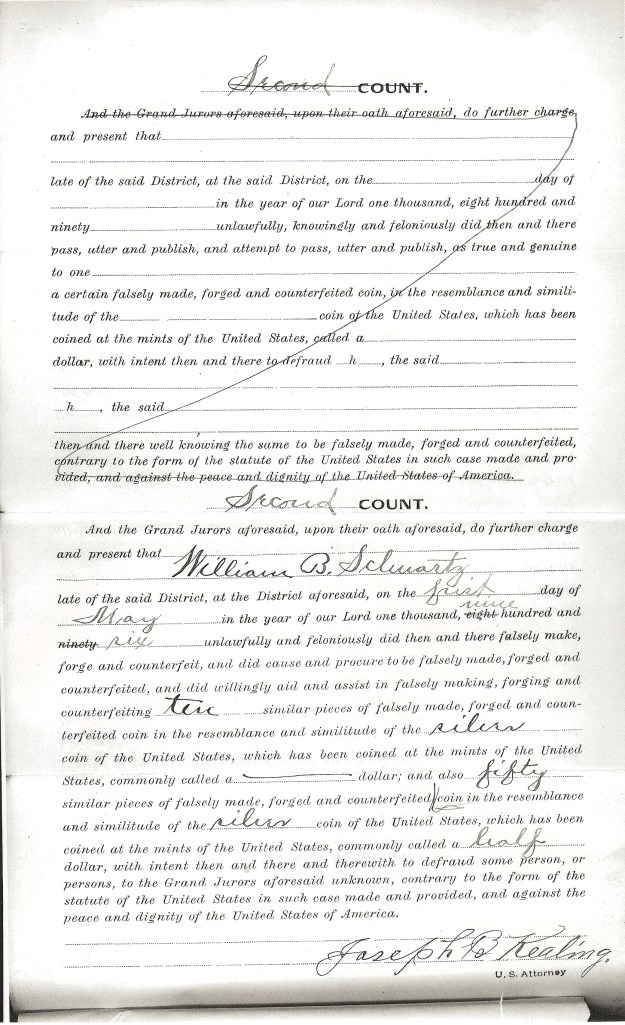 Second COUNT.
And the Grand Jurors aforesaid, upon their oath aforesaid, do further charge
and present that
late of the said District, at the said District, on the day of
in the year of our Lord one thousand, eight hundred and
ninety unlawfully, knowingly and feloniously did then and there
pass, utter and publish, and attempt to pass, utter and publish, as true and genuine
to one
a certain falsely made, forged and counterfeited coin, in the resemblance and simili-
tude of the coin of the United States, which has been
coined at the mints of the United States, called a
dollar, with intent then and there to defraud h , the said
h , the said
then and there well knowing the same to be falsely made, forged and counterfeited,
contrary to the form of the statute of the United States in such case made and pro-
vided, and against the peace and dignity of the United States of America.
Second COUNT.
And the Grand Jurors aforesaid, upon their oath aforesaid, do further charge
and present that William B. Schwartz
late of the said District, at the District aforesaid, on the first day of
May in the year of our Lord one thousand, eight nine hundred and
ninety six unlawfully and feloniously did then and there falsely make,
forge and counterfeit, and did cause and procure to be falsely made, forged and
counterfeited, and did willingly aid and assist in falsely making, forging and
counterfeiting ten similar pieces of falsely made, forged and coun-
terfeited coin in the resemblance and similitude of the silver
coin of the United States, which has been coined at the mints of the United
States, commonly called a dollar; and also fifty
similar pieces of falsely made, forged and counterfeited coin in the resemblance
and similitude of the silver coin of the United States, which has been
coined at the mints of the United States, commonly called a half
dollar, with intent then and there and therewith to defraud some person, or
persons, to the Grand Jurors aforesaid unknown, contrary to the form of the
statute of the United States in such case made and provided, and against the
peace and dignity of the United States of America.
Joseph B Kealing.
U. S. Attorney